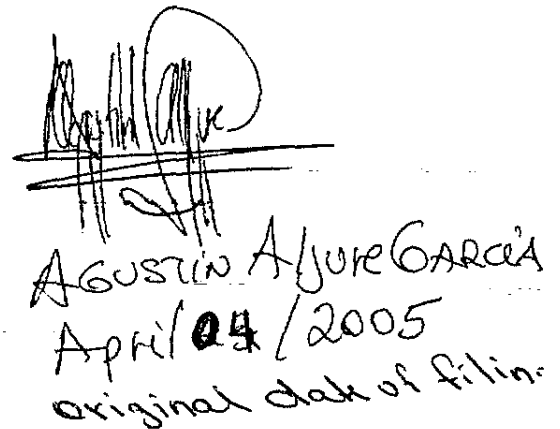 AGUSTÍN AljUre GARCÍA
April 04 / 2005
original date of filin